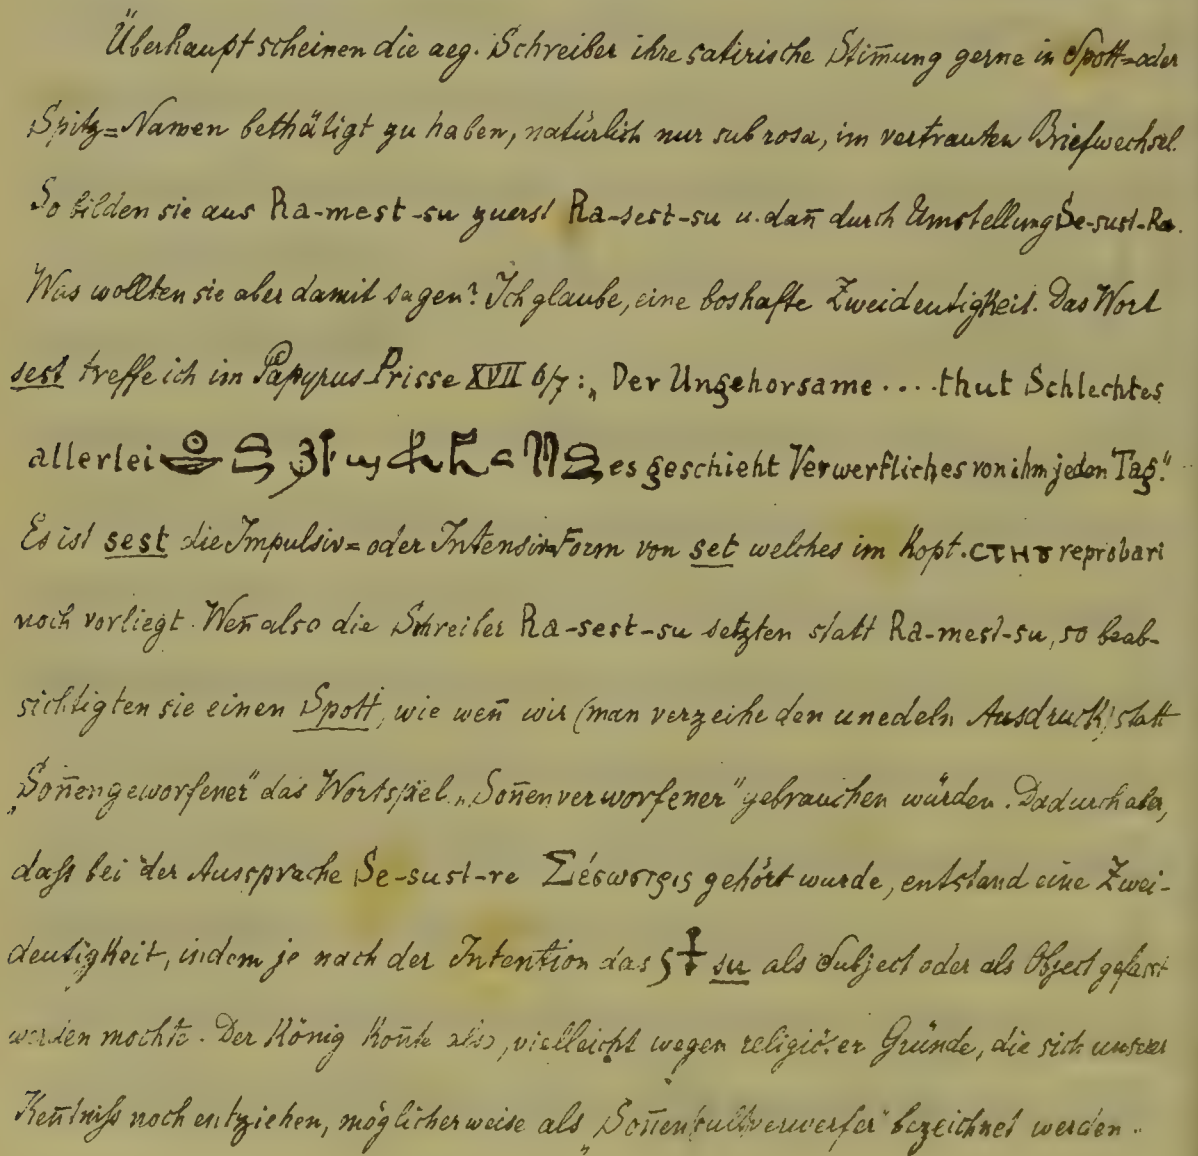 Überhaupt scheinen die aeg. Schreiber ihre satirische Stim̄ung gerne in Spott=oder
Spitz=Namen bethätigt zu haben, natürlich nur sub rosa, im vertrauten Briefwechsel.
So bilden sie aus Ra-mest-su zuerst Ra-sest-su u. dan̄ durch Umstellung Se-sust-Ra.
Was wollten sie aber damit sagen? Ich glaube, eine boshafte Zweideutigkeit. Das Wort
sest treffe ich im Papyrus Prisse XVII 6/7: „Der Ungehorsame .... thut Schlechtes
allerlei es geschieht Verwerfliches von ihm jeden Tag."
Es ist sest die Impulsiv= oder Intensiv=Form von set welches im Kopt. ⲥⲧⲏⲩ reprobari
noch vorliegt. Wen̄ also die Schreiber Ra-sest-su setzten statt Ra-mest-su, so beab-
sichtigten sie einen Spott, wie wen̄ wir (man verzeihe den unedeln Ausdruck) statt
„Son̄engeworfener" das Wortspiel „Son̄enverworfener" gebrauchen würden. Dadurch aber,
daſs bei der Aussprache Se-sust-re Σέσωσρις gehört wurde, entstand eine Zwei-
deutigkeit, indem je nach der Intention das su als Subject oder als Object gefasst
werden mochte. Der König kon̄te also, vielleicht wegen religiöser Gründe, die sich unserer
Ken̄tniſs noch entziehen, möglicherweise als „Son̄enkultverwerfer" bezeichnet werden.